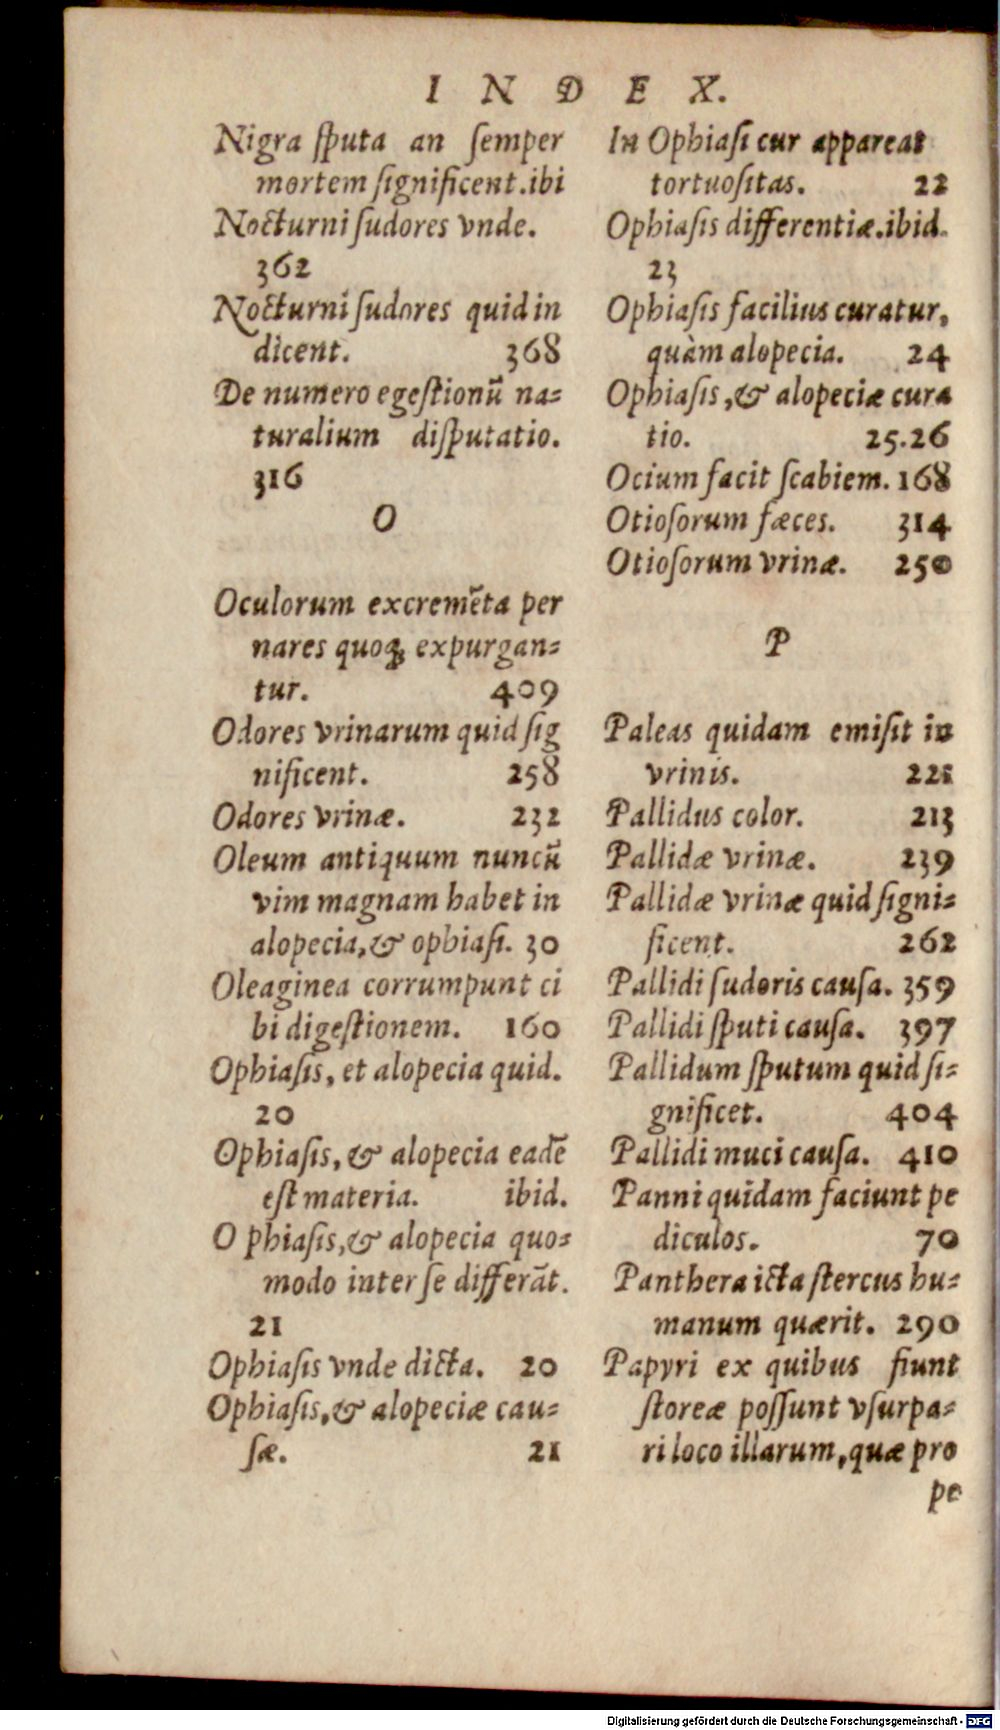 INDEX.
Nigra ſputa an ſemper
mortem ſignificent.ibi
Nocturni ſudores vnde.
362
Nocturni ſudores quid in
dicent. 368
De numero egeſtionũ na=
turalium diſputatio.
316
O
Oculorum excremẽta per
nares quoq; expurgan=
tur. 409
Odores vrinarum quid ſig
nificent. 258
Odores vrinæ. 232
Oleum antiquum nuncũ
vim magnam habet in
alopecia,& ophiaſi. 30
Oleaginea corrumpunt ci
bi digeſtionem. 160
Ophiaſis, et alopecia quid.
20
Ophiaſis, & alopecia eadẽ
eſt materia. ibid.
O phiaſis,& alopecia quo=
modo inter ſe differãt.
21
Ophiaſis vnde dicta. 20
Ophiaſis,& alopeciæ cau=
ſæ. 21
In Ophiaſi cur appareat
tortuoſitas. 22
Ophiaſis differentiæ.ibid.
23
Ophiaſis facilius curatur,
quàm alopecia. 24
Ophiaſis,& alopeciæ cura
tio. 25.26
Ocium facit ſcabiem. 168
Otioſorum fæces. 314
Otioſorum vrinæ. 250
P
Paleas quidam emiſit in
vrinis. 221
Pallidus color. 213
Pallidæ vrinæ. 239
Pallidæ vrinæ quid ſigni=
ficent. 262
Pallidi ſudoris cauſa. 359
Pallidi ſputi cauſa. 397
Pallidum ſputum quid ſi=
gnificet. 404
Pallidi muci cauſa. 410
Panni quidam faciunt pe
diculos. 70
Panthera icta ſtercus hu=
manum quærit. 290
Papyri ex quibus fiunt
ſtoreæ poſſunt vſurpa=
ri loco illarum,quæ pro
pe
Digitalisierung gefördert durch die Deutsche Forschungsgemeinschaft - DFG